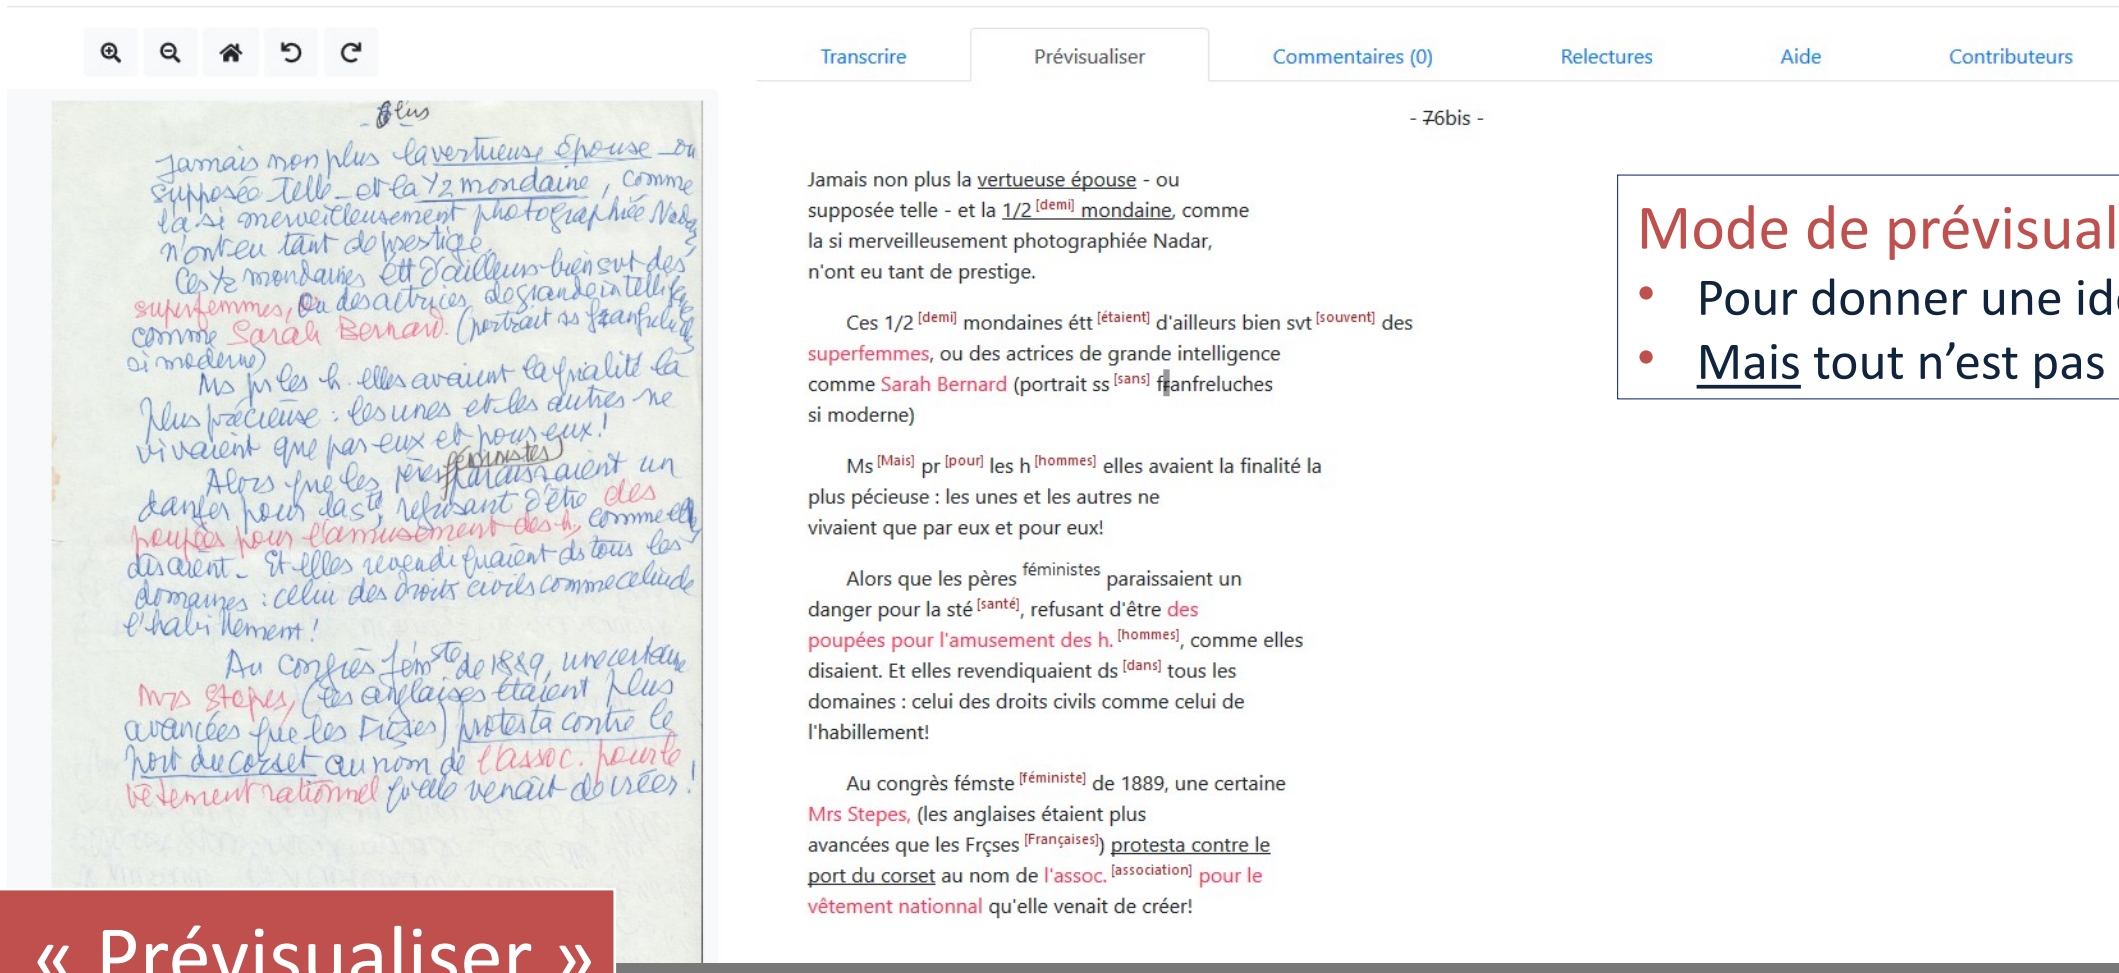 Transcrire Prévisualiser Commentaires (0) Relectures Aide Contributeurs
Jamais non plus la vertueuse épouse - ou
supposée telle - et la 1/2 mondaine, comme
la si merveilleusement photographiée Nadar,
n'ont eu tant de prestige.
Ces 1/2 mondaines étt d'ailleurs bien svt des
superfemmes, ou des actrices de grande intellig
comme Sarah Bernard. (portrait ss franfreluch
si moderne)
Ms pr les h. elles avaient la finalité la
plus précieuse : les unes et les autres ne
vivaient que par eux et pour eux!
féministes
Alors que les pères paraissaient un
danger pour la sté, refusant d'être des
poupées pour l'amusement des h, comme elles
disaient. Et elles revendiquaient ds tous les
domaines : celui des droits civils comme celui de
l'habillement!
Au congrès fémste de 1889, une certaine
Mrs Stepes, (les anglaises étaient plus
avancées que les Frçses) protesta contre le
port du corset au nom de l'assoc. pour le
vêtement rationnel qu'elle venait de créer!
- 76bis -
Jamais non plus la vertueuse épouse - ou
supposée telle - et la 1/2 [demi] mondaine, comme
la si merveilleusement photographiée Nadar,
n'ont eu tant de prestige.
Ces 1/2 [demi] mondaines étt [étaient] d'ailleurs bien svt [souvent] des
superfemmes, ou des actrices de grande intelligence
comme Sarah Bernard (portrait ss [sans] franfreluches
si moderne)
Ms [Mais] pr [pour] les h [hommes] elles avaient la finalité la
plus pécieuse : les unes et les autres ne
vivaient que par eux et pour eux!
Alors que les pères féministes paraissaient un
danger pour la sté [santé], refusant d'être des
poupées pour l'amusement des h. [hommes], comme elles
disaient. Et elles revendiquaient ds [dans] tous les
domaines : celui des droits civils comme celui de
l'habillement!
Au congrès fémste [féministe] de 1889, une certaine
Mrs Stepes, (les anglaises étaient plus
avancées que les Frçses [Françaises]) protesta contre le
port du corset au nom de l'assoc. [association] pour le
vêtement nationnal qu'elle venait de créer!
Mode de prévisual
• Pour donner une idé
• Mais tout n'est pas
« Prévisualiser »